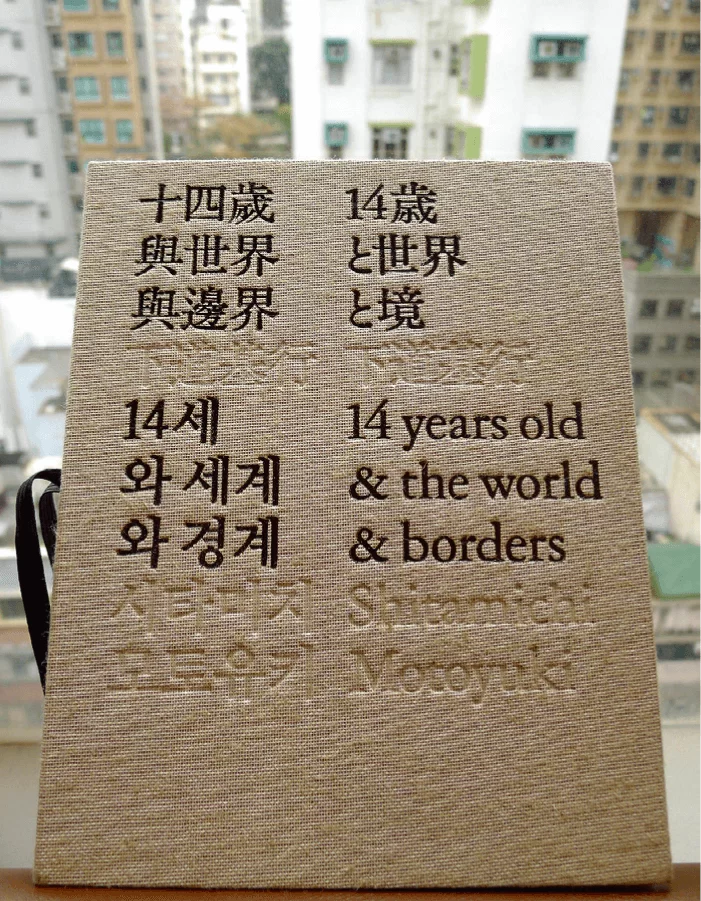 十四歲
與世界
與邊界
下道基行
14歳
と世界
と境
下道基行
14세
와 세계
와 경계
시타미치
모토유키
14 years old
& the world
& borders
Shitamichi
Motoyuki